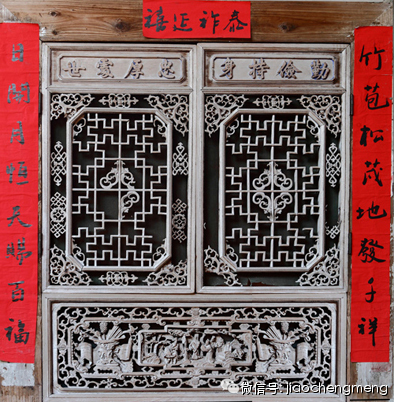 泰祚延禧
竹苞松茂地發千祥
日月恒天賜百福
勤儉持身
忠厚處世
微信号: jiaochengmeng